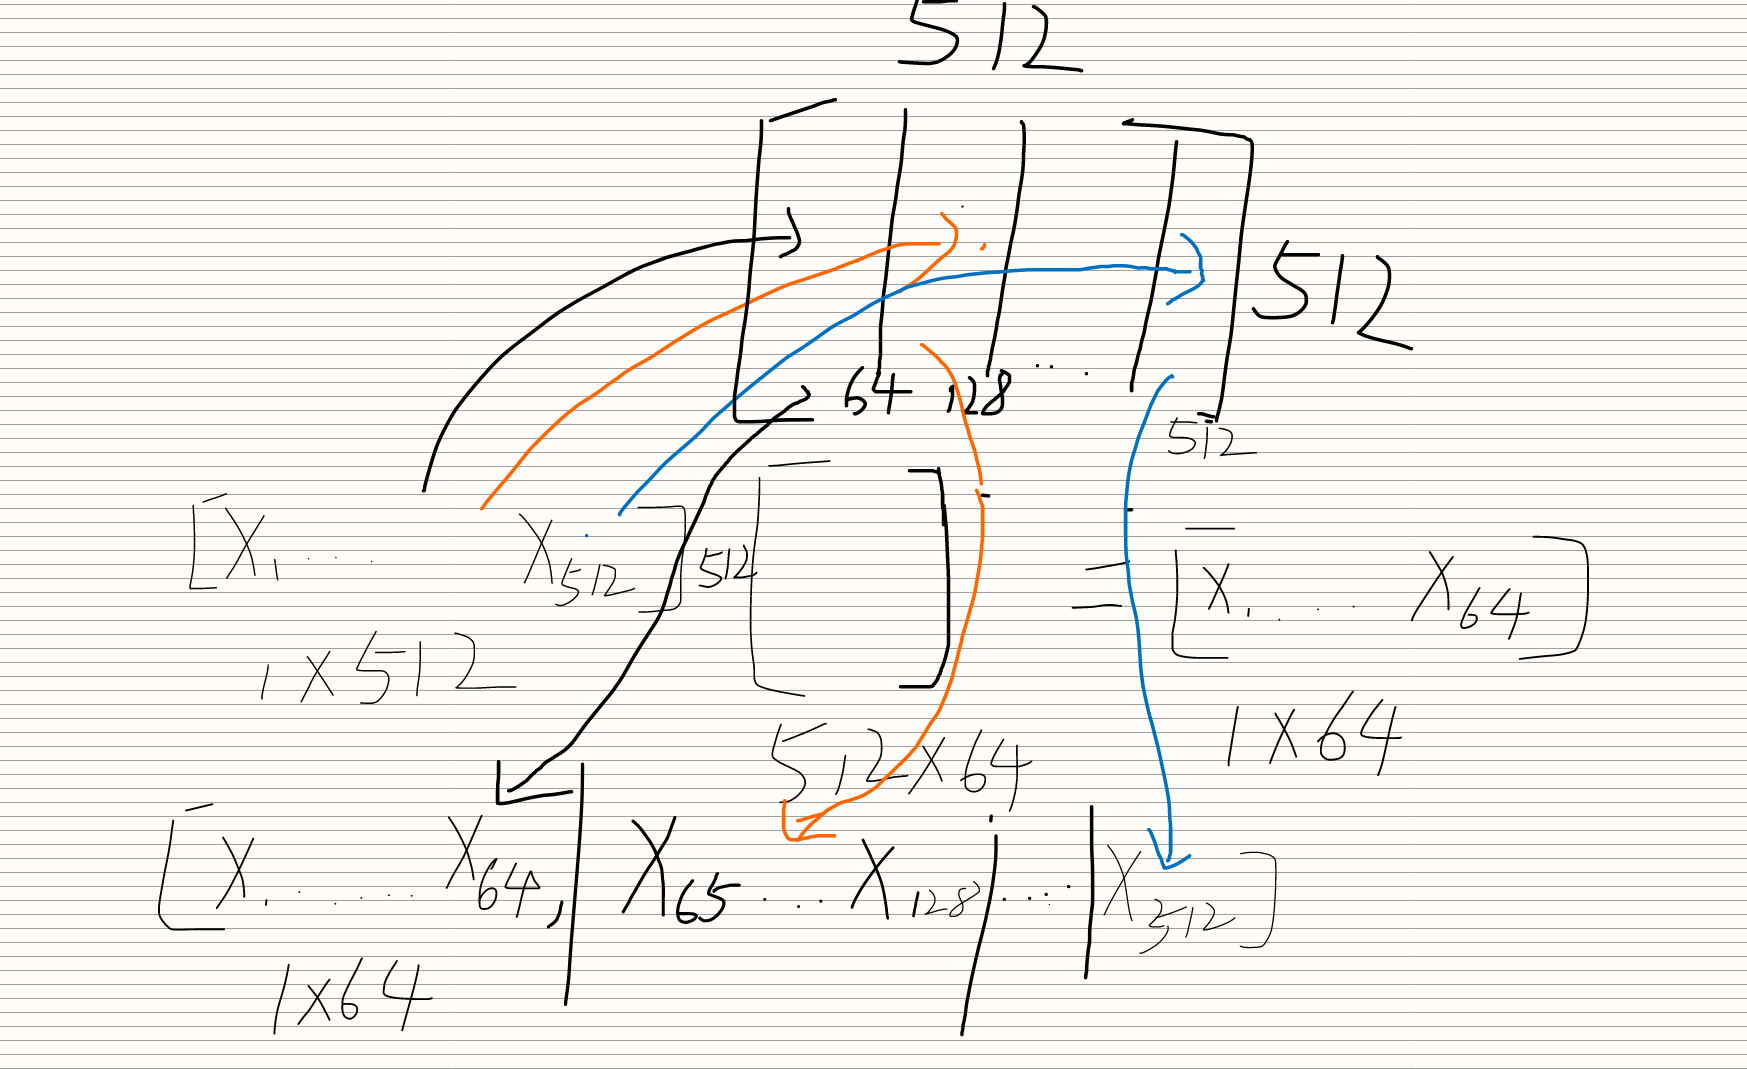 512
512
64 128 . . .
512
[X₁ . . . X₅₁₂] 512 [ ] = [X₁ . . . X₆₄]
1 X 512
512 X 64
1 X 64
[X₁ . . . . . X₆₄, | X₆₅ . . . . X₁₂₈ | . . . . | X₅₁₂]
1 X 64